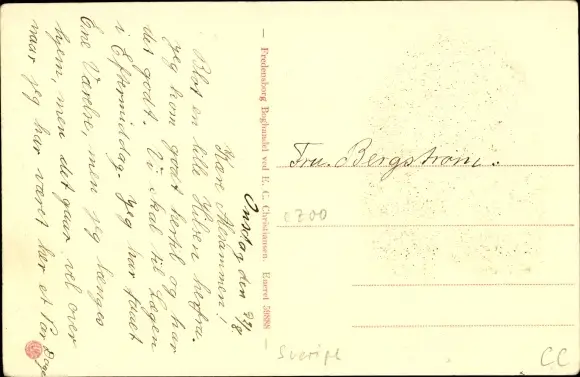 Onsdag den 27/8.
Kære Allesammen!
Blot en lille Hilsen herfra.
jeg kom godt hertil og har
det godt. Vi skal til Lægen
i Eftermiddag. Jeg har faaet
Ene Værelse, men jeg længes
hjem, men det gaar vel over
naar jeg har været her et Par Dage
Fredensborg Boghandel ved E. C. Christiansen. Eneret 59888
Fru. Bergstrøm.
c 200
Sverige
CC